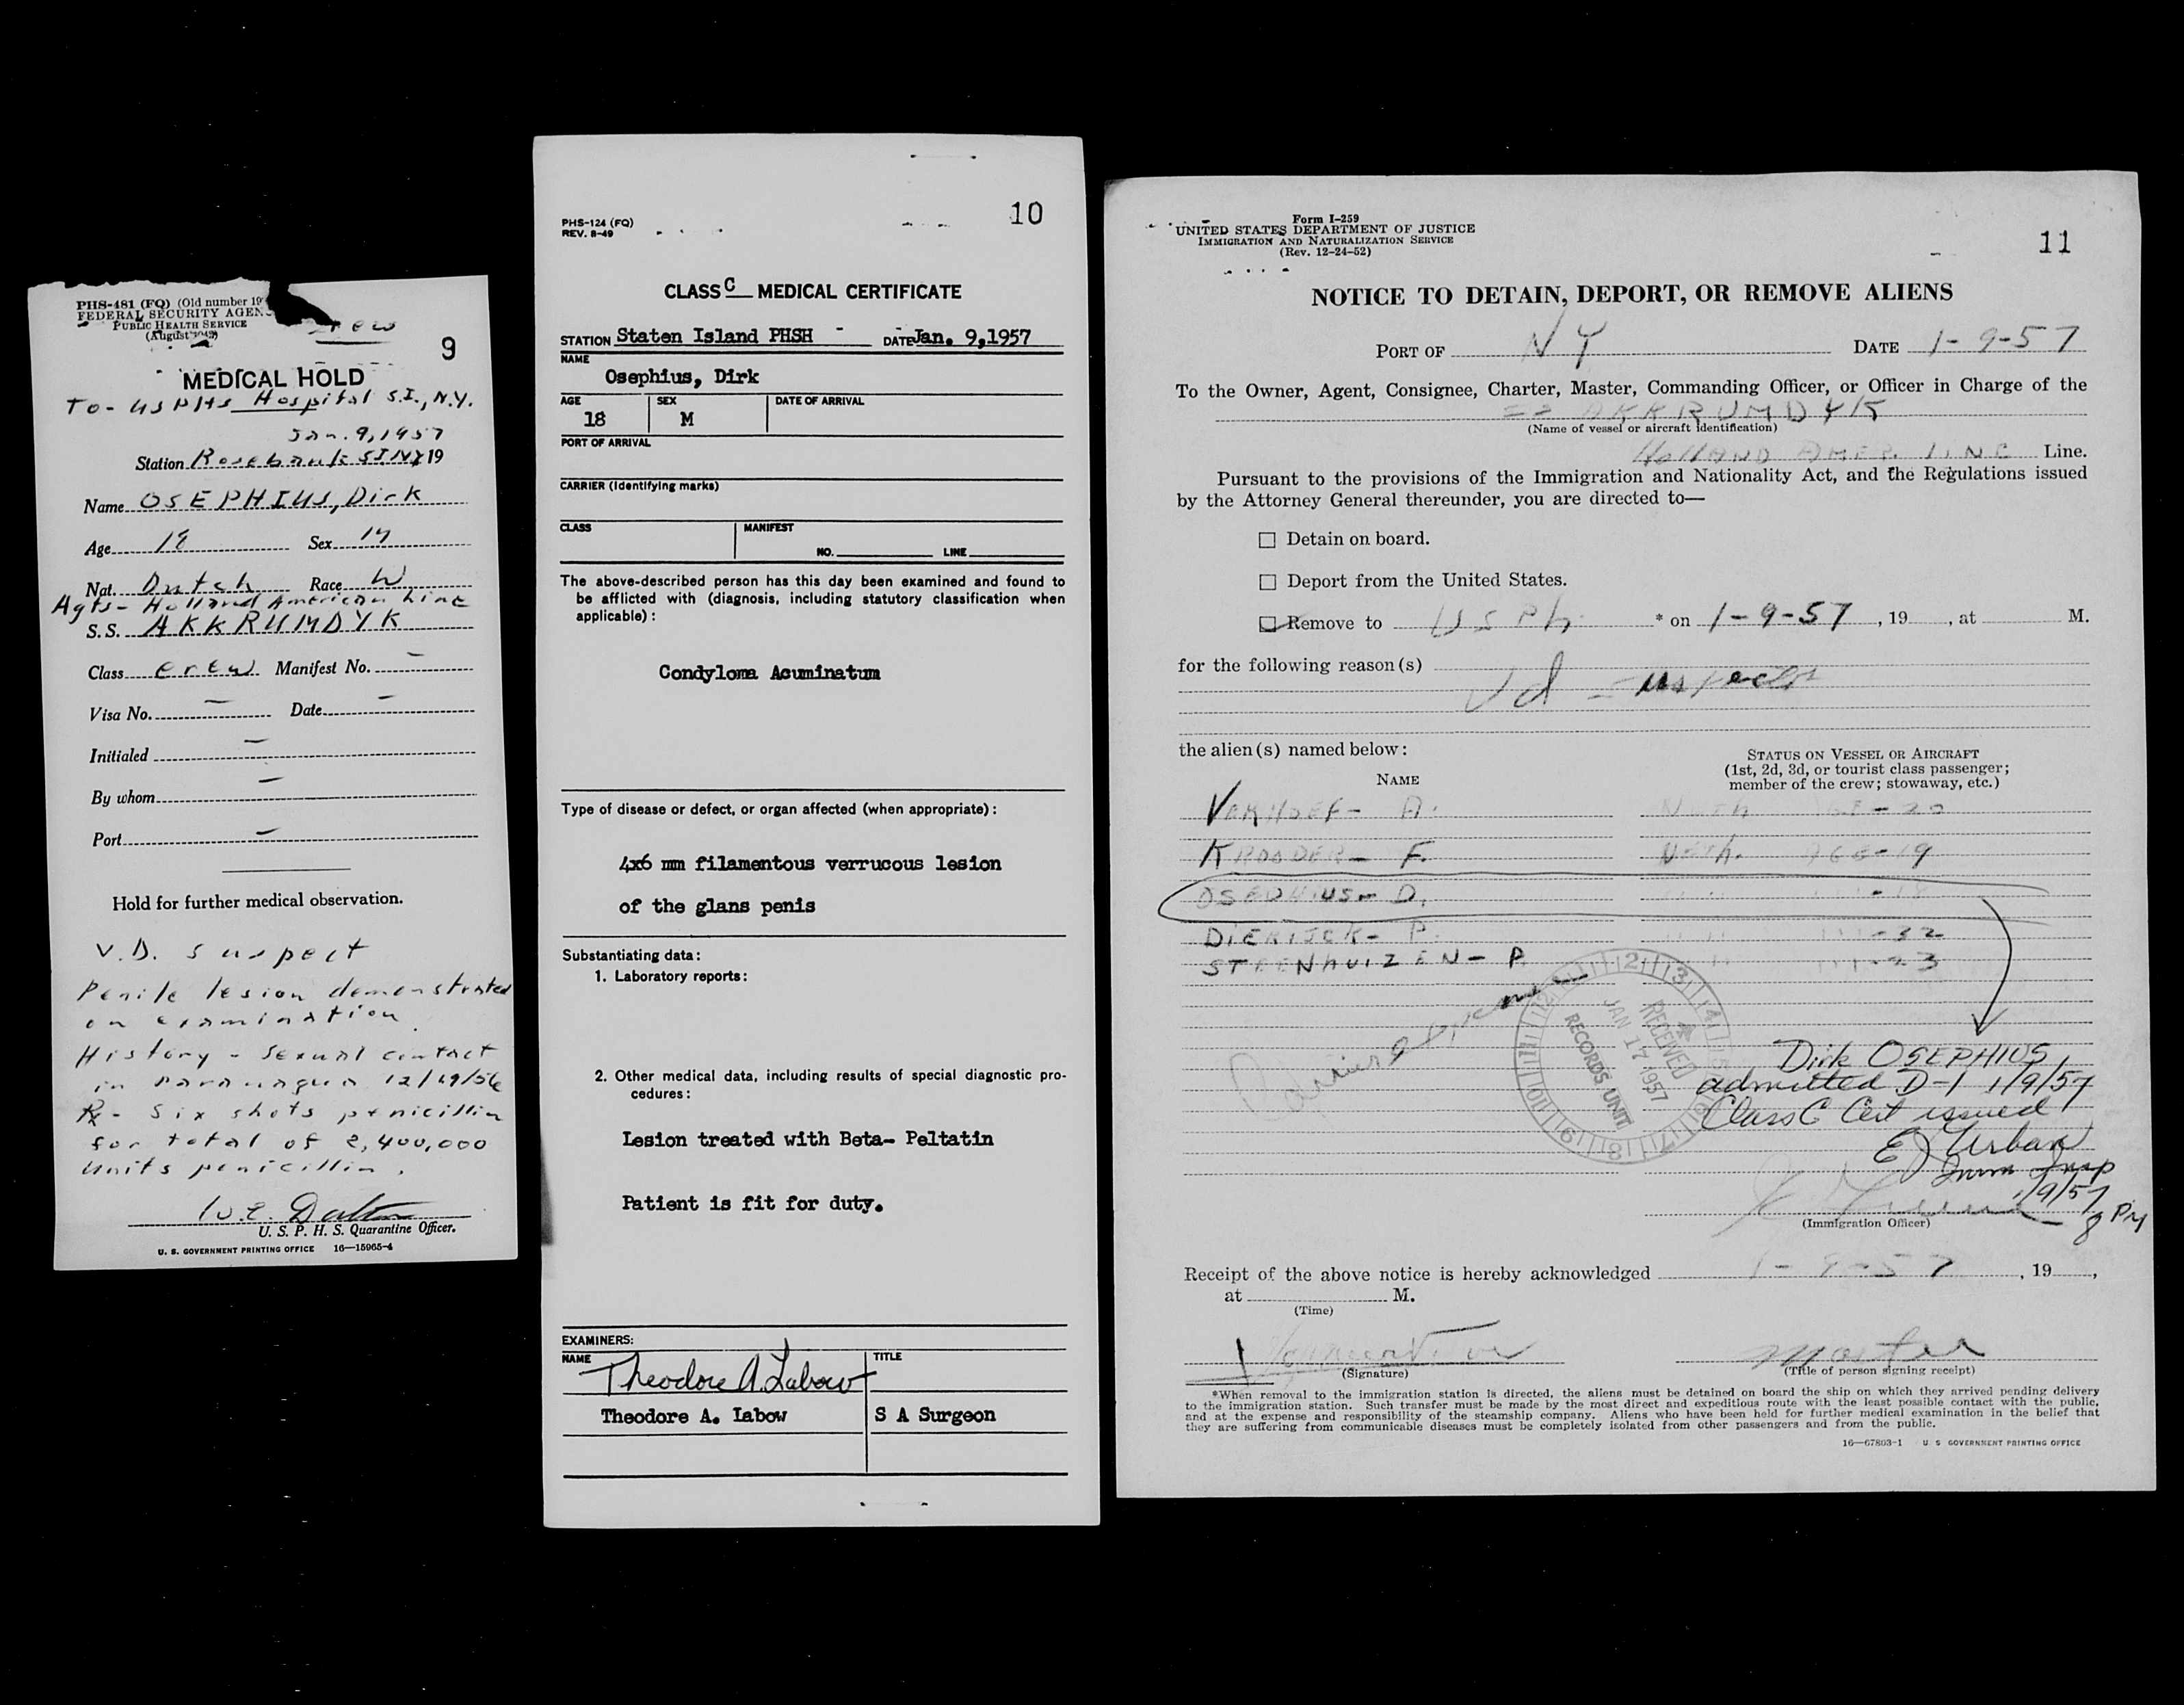 PHS-481 (FQ) (Old number 19
FEDERAL SECURITY AGEN
PUBLIC HEALTH SERVICE
(August 1949)
9
MEDICAL HOLD
To- USPHS Hospital S.I., N.Y.
Jan. 9, 1957
Station Rosebank SI NY 19
Name OSEPHIUS, Dirk
Age 18 Sex M
Nat. Dutch Race W
Agts- Holland American Line
S.S. AKKRUMDYK
Class crew Manifest No. -
Visa No. - Date -
Initialed -
By whom -
Port -
Hold for further medical observation.
V.D. suspect
Penile lesion demonstrated
on examination.
History - Sexual contact
in Paranagua 12/19/56
Rx- Six shots penicillin
for total of 2,400,000
units penicillin.
W.E. Dalton
U. S. P. H. S. Quarantine Officer.
U. S. GOVERNMENT PRINTING OFFICE 16—15965-4
PHS-124 (FQ)
REV. 8-49
10
CLASS C MEDICAL CERTIFICATE
STATION Staten Island PHSH - DATE Jan. 9,1957
NAME
Osephius, Dirk
AGE SEX DATE OF ARRIVAL
18 M
PORT OF ARRIVAL
CARRIER (Identifying marks)
CLASS MANIFEST
NO. LINE
The above-described person has this day been examined and found to
be afflicted with (diagnosis, including statutory classification when
applicable):
Condyloma Acuminatum
Type of disease or defect, or organ affected (when appropriate):
4x6 mm filamentous verrucous lesion
of the glans penis
Substantiating data:
1. Laboratory reports:
2. Other medical data, including results of special diagnostic pro-
cedures:
Lesion treated with Beta- Peltatin
Patient is fit for duty.
EXAMINERS:
NAME TITLE
Theodore A. Labow
Theodore A. Labow S A Surgeon
Form I-259
UNITED STATES DEPARTMENT OF JUSTICE
IMMIGRATION AND NATURALIZATION SERVICE
(Rev. 12-24-52)
11
NOTICE TO DETAIN, DEPORT, OR REMOVE ALIENS
PORT OF NY DATE 1-9-57
To the Owner, Agent, Consignee, Charter, Master, Commanding Officer, or Officer in Charge of the
SS AKKRUMDYK
(Name of vessel or aircraft identification)
HOLLAND AMER. LINE Line.
Pursuant to the provisions of the Immigration and Nationality Act, and the Regulations issued
by the Attorney General thereunder, you are directed to—
☐ Detain on board.
☐ Deport from the United States.
☑ Remove to USPH * on 1-9-57, 19 , at M.
for the following reason(s)
Vd - suspects
the alien(s) named below:
NAME
STATUS ON VESSEL OR AIRCRAFT
(1st, 2d, 3d, or tourist class passenger;
member of the crew; stowaway, etc.)
VERHOEF- A. Neth AGE-20
KROODER- F. Neth. AGE-19
OSEPHIUS- D. " " " -18
DIERIJCK- P. " " " -32
STEENHUIZEN- P. " " " -23
RECEIVED
JAN 17 1957
RECORDS UNIT
Dirk OSEPHIUS,
admitted D-1 1/9/57
Class C Cert issued
E J Urban
Imm Insp
1/9/57
8 PM
(Immigration Officer)
Receipt of the above notice is hereby acknowledged 1-9-57, 19 ,
at M.
(Time)
Master
(Signature) (Title of person signing receipt)
*When removal to the immigration station is directed, the aliens must be detained on board the ship on which they arrived pending delivery
to the immigration station. Such transfer must be made by the most direct and expeditious route with the least possible contact with the public,
and at the expense and responsibility of the steamship company. Aliens who have been held for further medical examination in the belief that
they are suffering from communicable diseases must be completely isolated from other passengers and from the public.
16—67803-1 U S GOVERNMENT PRINTING OFFICE